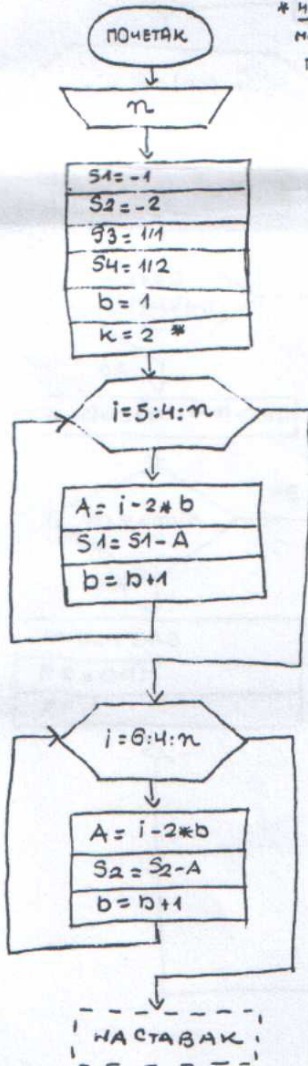 ПОЧЕТАК
n
S1=-1
S2=-2
S3=1/1
S4=1/2
b=1
k=2 *
i=5:4:n
A=i-2*b
S1=S1-A
b=b+1
i=6:4:n
A=i-2*b
S2=S2-A
b=b+1
НАСТАВАК